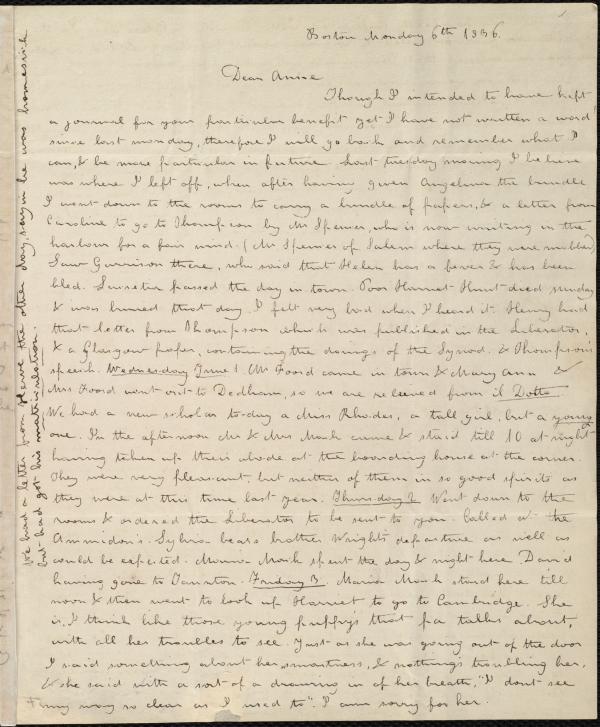 Boston Monday 6th 1836.
Dear Annie
Though I intended to have kept
a journal for your particular benefit yet I have not written a word
since last monday, therefore I will go back and remember what I
can, & be more particular in future. Last tuesday morning I believe
was where I left off, when after having given Angelina the bundle
I went down to the rooms to carry a bundle of papers, & a letter from
Caroline to go to Thompson by Mr Spencer, who is now waiting in the
harbour for a fair wind. (Mr Spencer of Salem where they were mobbed)
Saw Garrison there, who said that Helen has a fever & has been
bled. passed the day in town. Poor Harriet Hunt died sunday
& was buried that day. I felt very bad when I heard it. Henry had
that letter from Thompson which was published in the Liberator,
& a Glasgow paper, containing the doings of the Synod, & Thompson's
speech. Wednesday June 1. Mr Foord came in town & Mary Ann &
Mrs Foord went out to Dedham, so we are relieved from it Dotto.
We had a new scholar to-day a Miss Rhodes, a tall girl, but a young
one. In the afternoon Mr & Mrs Mack came & staid till 10 at night
having taken up their abode at the boarding house at the corner.
They were very pleasant, but neither of them in so good spirits as
they were at this time last year. Thursday 2 Went down to the
rooms & ordered the Liberator to be sent to you. Called at the
Ammidon's. Sylvia bears brother Wright's departure as well as
could be expected. Maria Mack spent the day & night here David
having gone to Taunton. Friday 3. Maria Mack staid here till
noon & then went to look up Harriet to go to Cambridge. She
is, I think like those young puppys that pa talks about,
with all her troubles to see. Just as she was going out of the door
I said something about her smartness, & nothing's troubling her,
& she said with a sort of a drawing in of her breath, "I don't see
my way so clear as I used to". I am sorry for her.
We had a letter from the other day, saying he was homesick
but had got his matriculation.